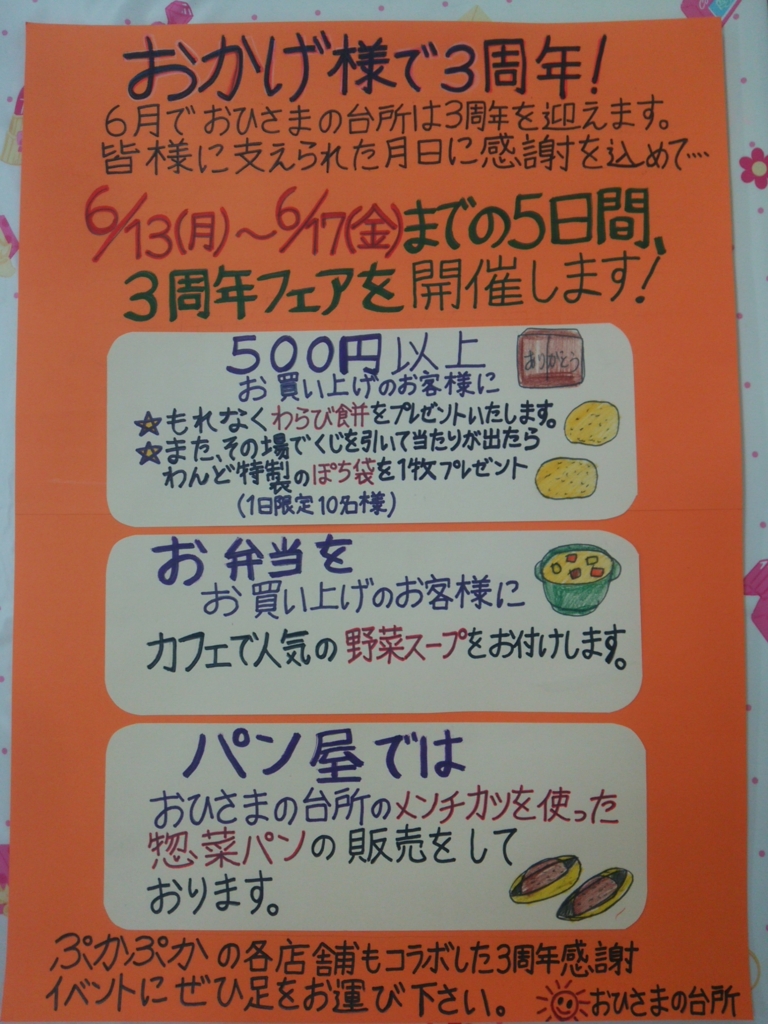 おかげ様で3周年!
6月でおひさまの台所は3周年を迎えます。
皆様に支えられた月日に感謝を込めて…
6/13(月)～6/17(金)までの5日間、
3周年フェアを開催します!
500円以上
ありがとう
お買い上げのお客様に
★もれなくわらび餅をプレゼントいたします。
★また、その場でくじを引いて当たりが出たら
わんど特製のぽち袋を1枚プレゼント
(1日限定10名様)
お弁当を
お買い上げのお客様に
カフェで人気の野菜スープをお付けします。
パン屋では
おひさまの台所のメンチカツを使った
惣菜パンの販売をして
おります。
ぷかぷかの各店舗もコラボした3周年感謝
イベントにぜひ足をお運び下さい。
おひさまの台所